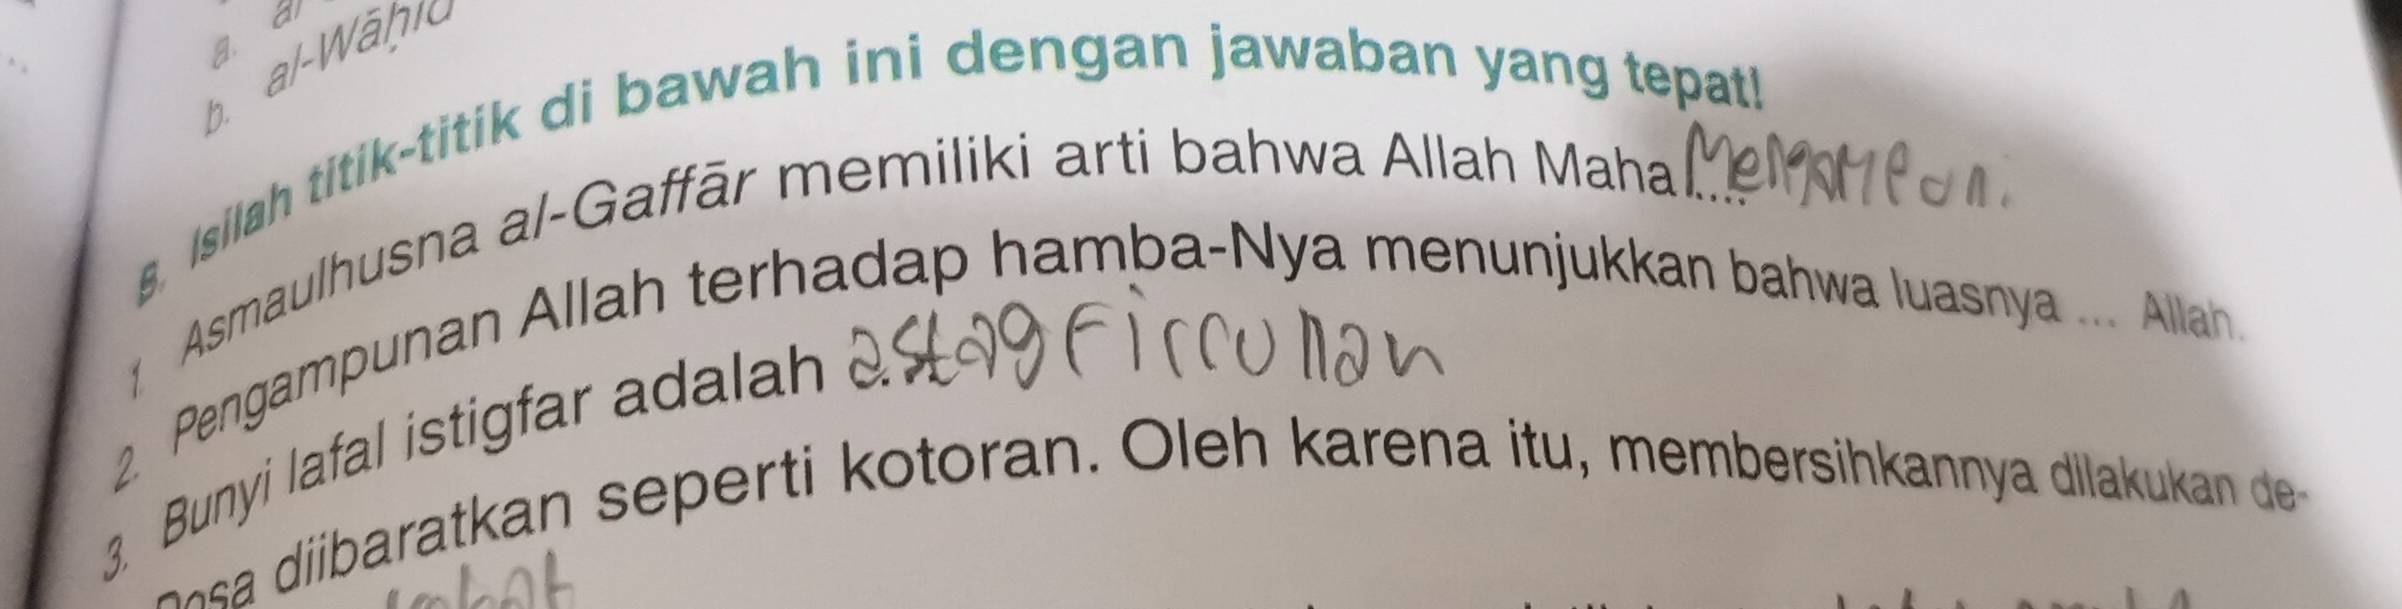 a.
b. al-Wāḥid
B. Isilah titik-titik di bawah ini dengan jawaban yang tepat!
1. Asmaulhusna al-Gaffār memiliki arti bahwa Allah Maha ....
2. Pengampunan Allah terhadap hamba-Nya menunjukkan bahwa luasnya ... Allah.
3. Bunyi lafal istigfar adalah
Dosa diibaratkan seperti kotoran. Oleh karena itu, membersihkannya dilakukan de-